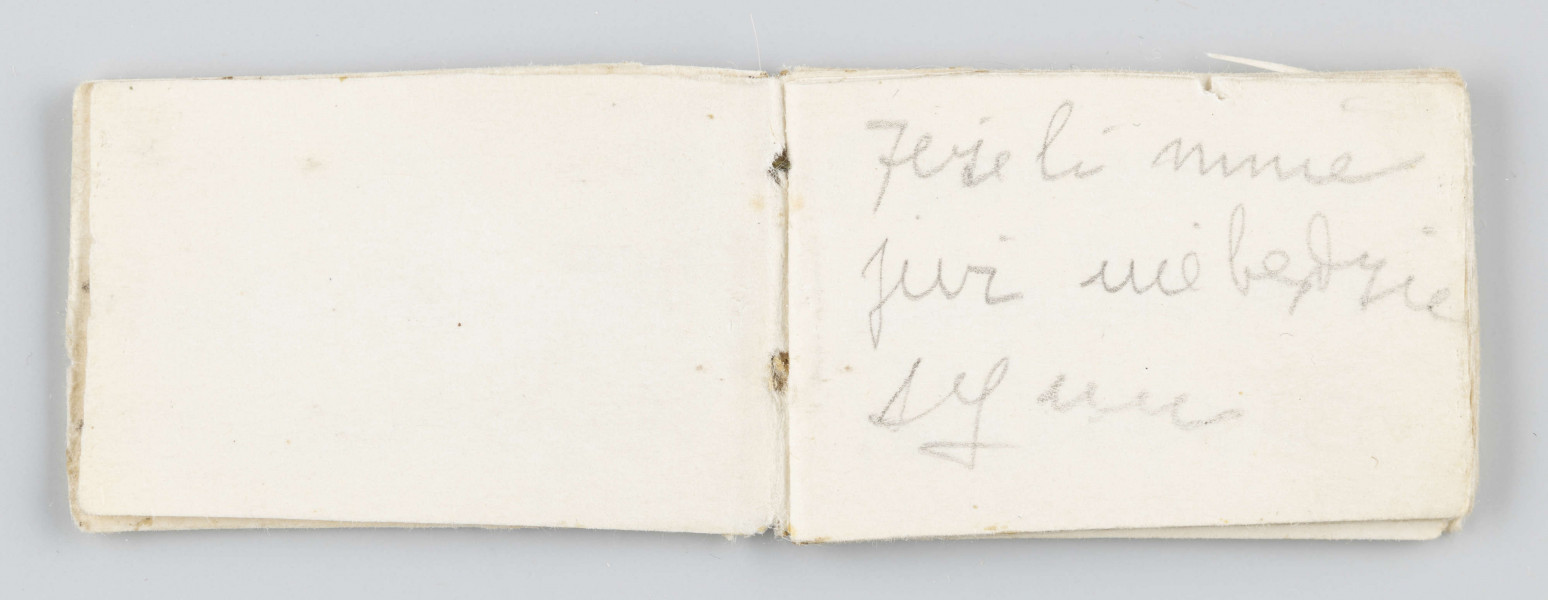 Jeżeli mnie
już nie będzie
synu